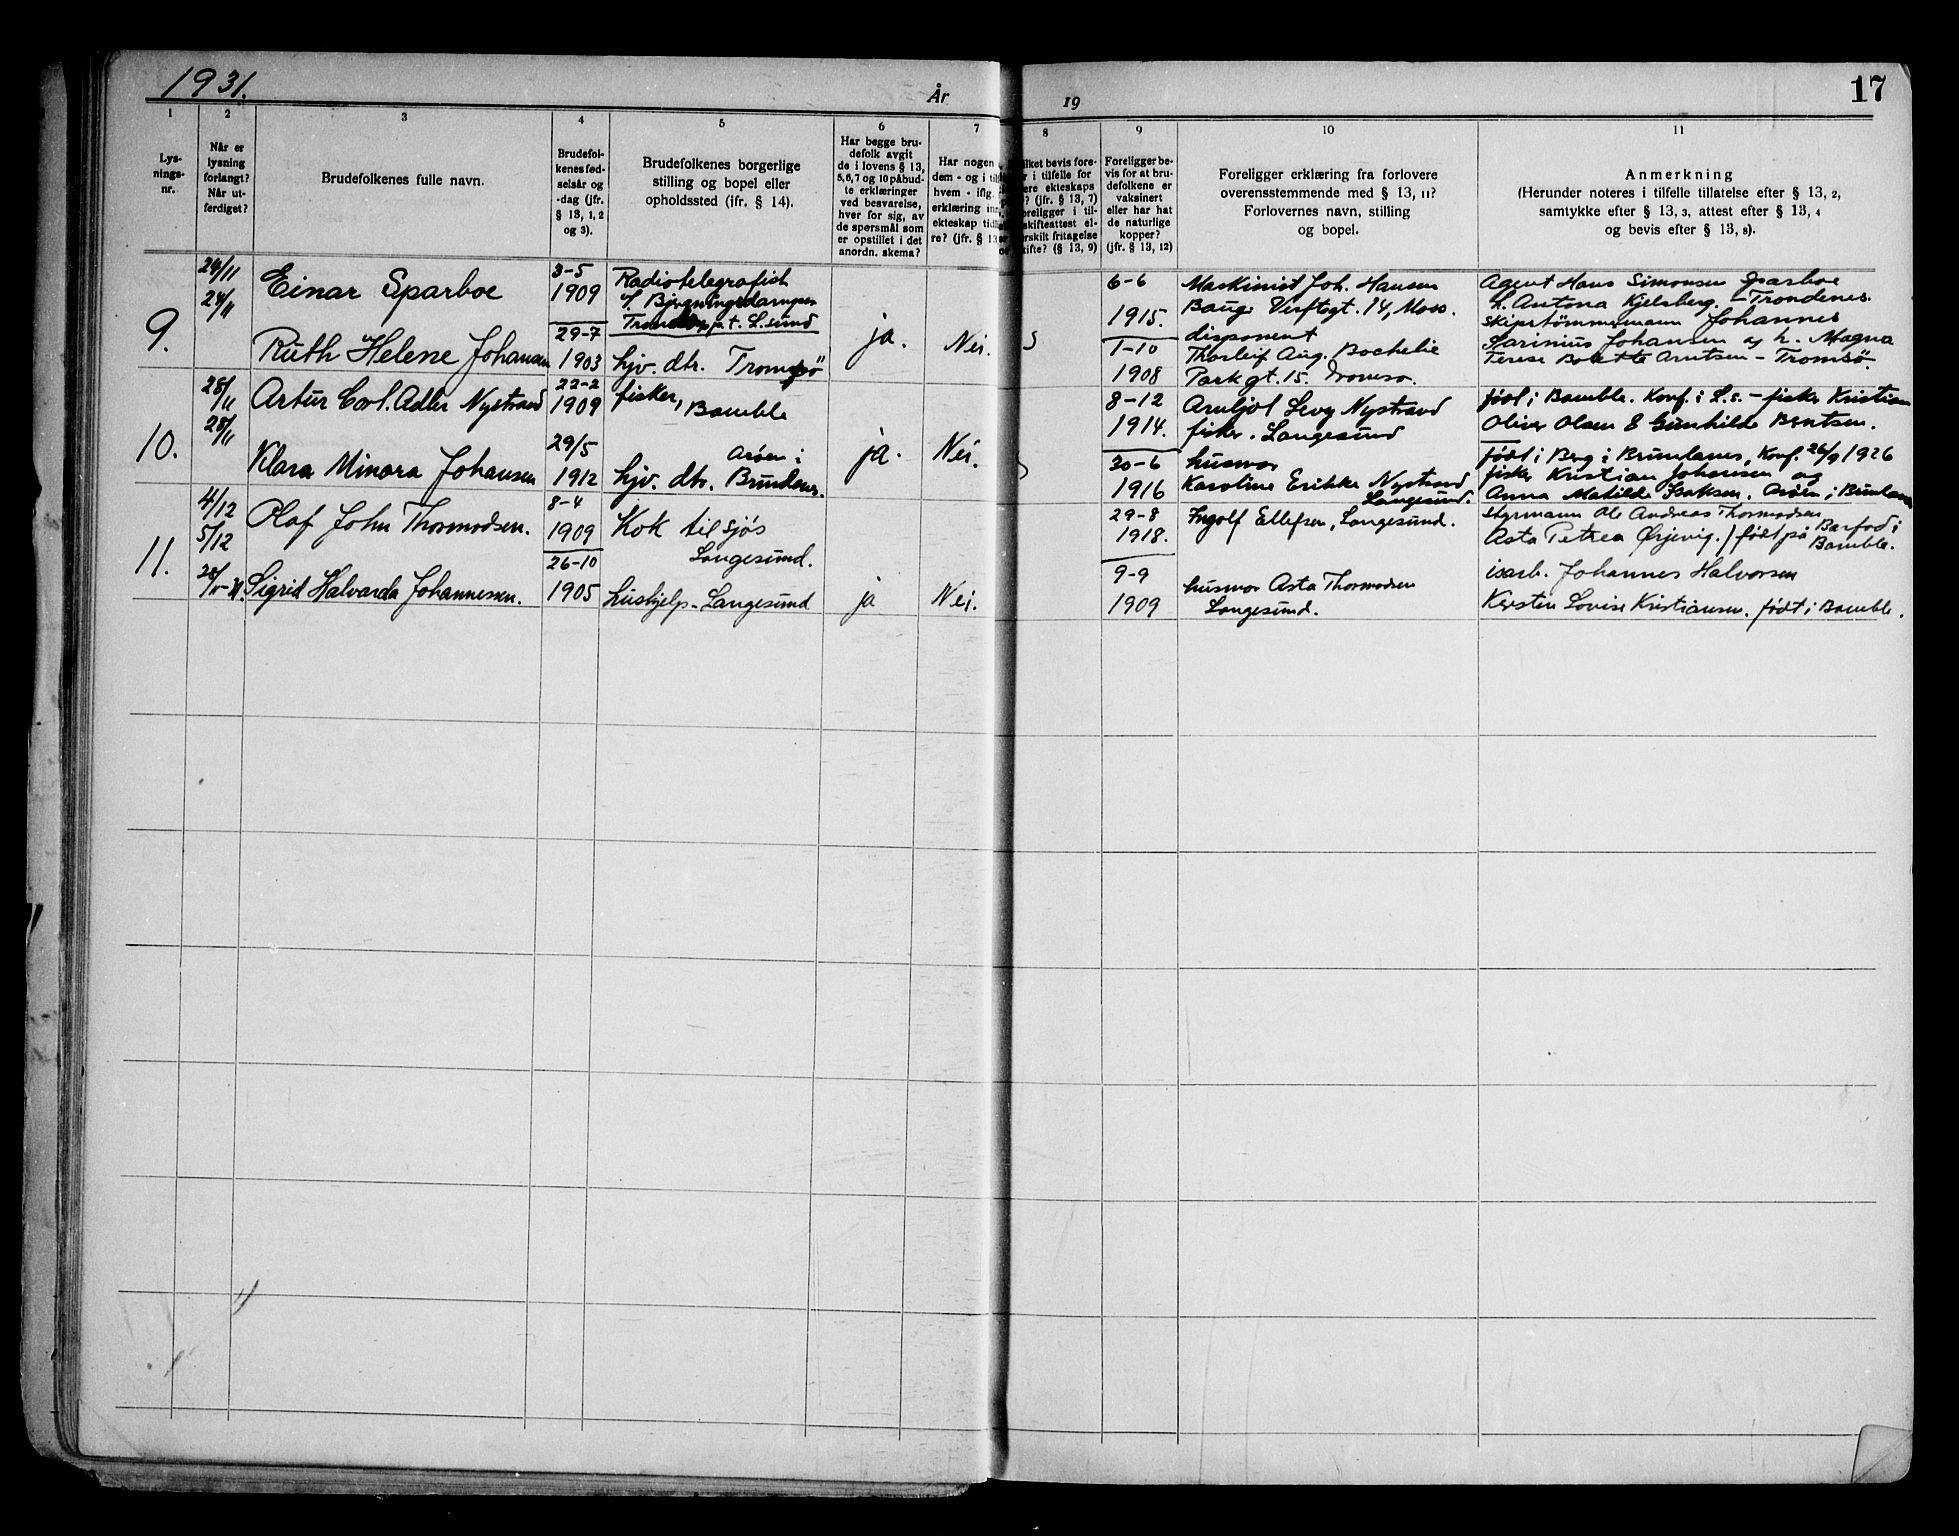 1931.
År
19
17
1
2
3
4
5
6
7
8
9
10
11
Lys-
nings-
nr.
Når er
lysning
forlangt?
Når ut-
ferdiget?
Brudefolkenes fulle navn.
Brudefol-
kenes fød-
selsår og
-dag (jfr.
§ 13, 1, 2
og 3).
Brudefolkenes borgerlige
stilling og bopel eller
opholdssted (ifr. § 14).
Har begge bru-
defolk avgit
de i lovens § 13,
5,6,7 og 10 påbud-
te erklæringer
ved besvarelse,
hver for sig, av
de spørsmål som
er opstillet i det
anordn. skema?
Har nogen
dem - og i til
hvem - iflg.
erklæring inn
ekteskap tidl
re? (jfr. § 13
ilket bevis fore-
r i tilfelle for
ere ekteskaps
? (jfr. § 13, 7)
oreligger i til-
skifteattest el-
erskilt fritagelse
kifte? (§ 13, 9)
Foreligger be-
vis for at bru-
defolkene er
vaksinert
eller har hat
de naturlige
kopper?
(jfr. § 13, 12)
Foreligger erklæring fra forlovere
overensstemmende med § 13, 11?
Forlovernes navn, stilling
og bopel.
Anmerkning
(Herunder noteres i tilfelle tillatelse efter § 13, 2,
samtykke efter § 13, 3, attest efter § 13, 4
og bevis efter § 13, 8).
9.
24/11
24/11
Einar Sparboe
3-5
1909
Radiotelegrafist
Bjergningsdamper
p.t. L.sund
Ruth Helene Johansen
29-7
1903
hjv. dtr. Tromsö
ja.
Nei.
6-6
1915.
Maskinist Joh. Hansen
Bauge Verftsgt. 14, Moss.
1-10
1908
disponent
Thorleif Aug. Bochelie
Parkgt. 15. Tromsø.
Agent Hans Simonsen Sparboe
h. Antona Kjelsberg. - Trondenes.
skipstømmermann Johannes
Marinius Johansen og h. Magna
Terese Bolette Arntsen - Tromsö.
10.
28/11
28/11
Artur Carl. Adler Nystrand
22-2
1909
fisker,
Bamble
Klara Minora Johansen
29/5
1912
Arøen i
hjv. dtr. Brunlanes.
ja.
Nei.
8-12
1914.
Arnljot Levy Nystrand
fisker. Langesund
30-6
1916
husmor
Karoline Erikke Nystrand
Langesund.
født i Bamble. Konf. i L.s. - fisker Kristian
Oliver Olsen & Gunhilde Berntsen.
født i Berg i Brunlanes, Konf. 26/9 1926
fisker Kristian Johansen og
Anna Matilde Isaksen. Arøen i Brunlanes
11.
4/12
5/12
Olaf John Thormodsen.
8-4
1909
Kok til sjøs
Langesund.
Sigrid Halvarda Johannessen.
26-10
1905
hushjelp - Langesund
ja
Nei.
29-8
1918.
Ingolf Ellefsen, Langesund.
9-9
1909
husmor Asta Thormodsen
Langesund.
styrmann Ole Andreas Thormodsen
Asta Petrea Ørjevig. / født på Barfod i
Bamble.
isarb. Johannes Halvorsen
Kirsten Lovise Kristiansen. født i Bamble.